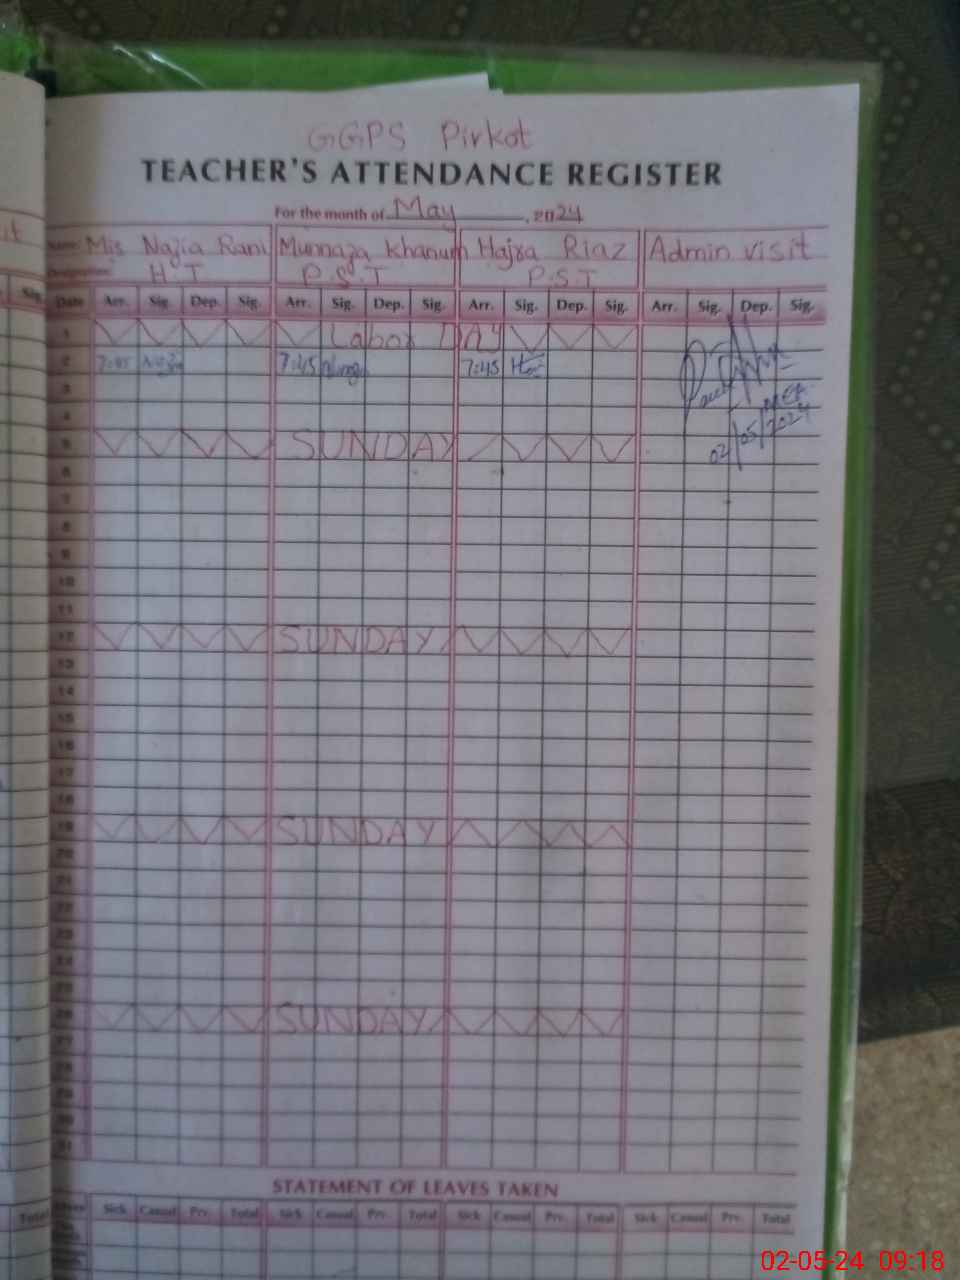 GGPS Pirkot
TEACHER'S ATTENDANCE REGISTER
For the month of May, 2024
Name Mis Najia Rani Munnaza Khanum Hajra Riaz Admin visit
Designation H.T P.S.T P.S.T
Date Arr. Sig. Dep. Sig. Arr. Sig. Dep. Sig. Arr. Sig. Dep. Sig. Arr. Sig. Dep. Sig.
1 Labor DAY
2 7:45 7:45 7:45
3
4
5 SUNDAY
02/05/2024
6
7
8
9
10
11
12 SUNDAY
13
14
15
16
17
18
19 SUNDAY
20
21
22
23
24
25
26 SUNDAY
27
28
29
30
31
STATEMENT OF LEAVES TAKEN
Total Sick Casual Prv. Total Sick Casual Prv. Total Sick Casual Prv. Total Sick Casual Prv. Total
02-05-24 09:18